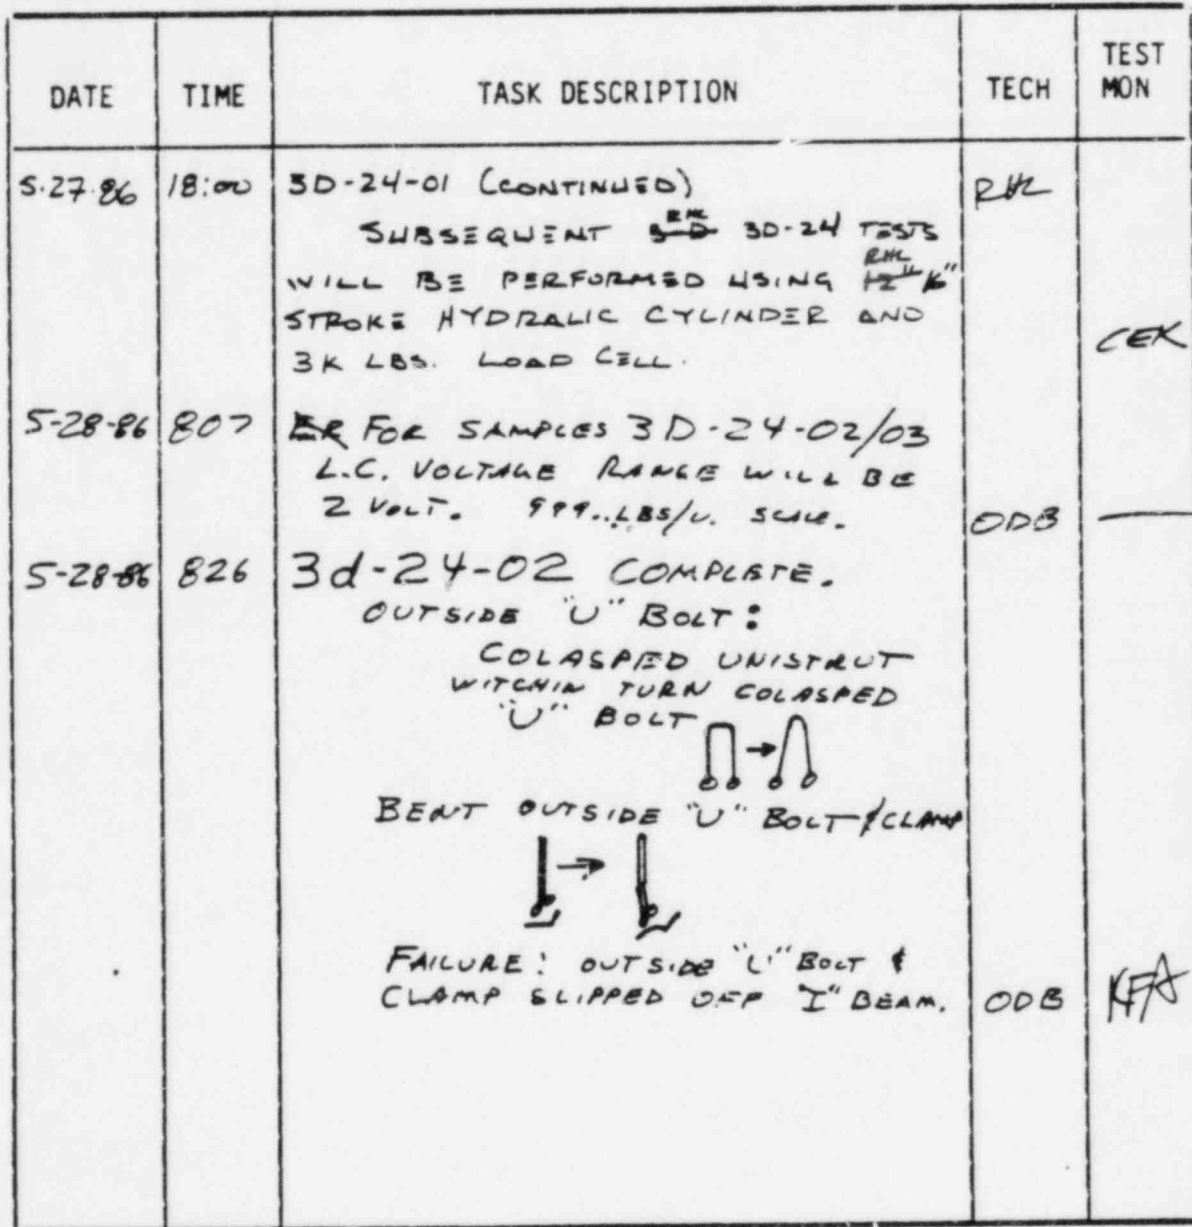 DATE TIME TASK DESCRIPTION TECH TEST MON
5.27.86 18:00 3D-24-01 (CONTINUED) RHL
RHL
SUBSEQUENT 3-D 3D-24 TESTS
RHL
WILL BE PERFORMED USING 12" 16"
STROKE HYDRALIC CYLINDER AND
3K LBS. LOAD CELL. CEK
5-28-86 807 ER FOR SAMPLES 3D-24-02/03
L.C. VOLTAGE RANGE WILL BE
2 VOLT. 999..LBS/V. SCALE. ODB
5-28-86 826 3d-24-02 COMPLETE.
OUTSIDE "U" BOLT:
COLASPED UNISTRUT
WITCHIN TURN COLASPED
"U" BOLT
BENT OUTSIDE "U" BOLT & CLAMP
FAILURE: OUTSIDE "U" BOLT &
CLAMP SLIPPED OFF "I" BEAM. ODB KFA